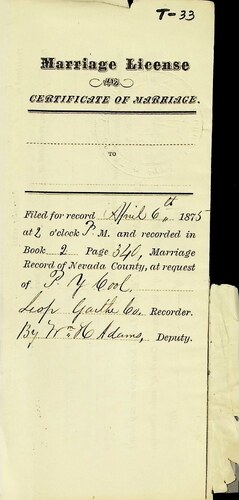 T-33
Marriage License
AND
CERTIFICATE OF MARRIAGE.
TO
Filed for record April 6th 1875
at 2 o'clock P. M. and recorded in
Book 2 Page 346, Marriage
Record of Nevada County, at request
of P. Y. Cool.
Leop Garthe Co. Recorder.
By Wm H Adams, Deputy.